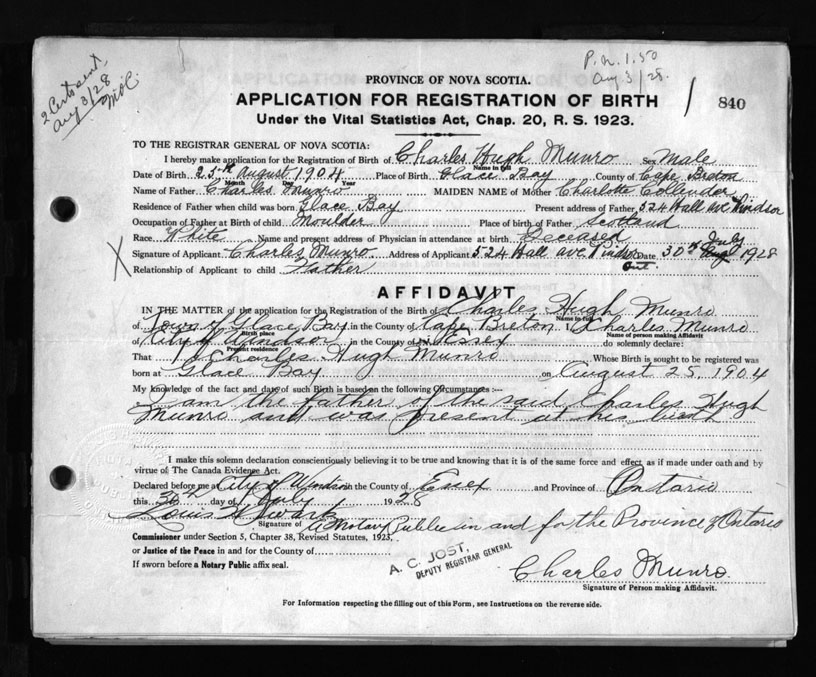 2 Certs sent,
Aug 3/28
P.N. 1.50
Aug 3/28.
PROVINCE OF NOVA SCOTIA.
APPLICATION FOR REGISTRATION OF BIRTH
840
Under the Vital Statistics Act, Chap. 20, R. S. 1923.
TO THE REGISTRAR GENERAL OF NOVA SCOTIA:
I hereby make application for the Registration of Birth of Charles Hugh Munro Sex Male
Name in full
Date of Birth 25th August 1904 Place of Birth Glace Bay County of Cape Breton
Month Day Year
Name of Father Charles Munro MAIDEN NAME of Mother Charlotte Collender
Residence of Father when child was born Glace Bay Present address of Father 524 Hall ave Windsor
Occupation of Father at Birth of child Moulder Place of birth of Father Scotland
Race White Name and present address of Physician in attendance at birth Deceased
Signature of Applicant Charles Munro Address of Applicant 524 Hall ave Windsor Ont. Date 30th July 1928
X
Relationship of Applicant to child Father
AFFIDAVIT
IN THE MATTER of the application for the Registration of the Birth of Charles Hugh Munro
Name in full
of Town of Glace Bay in the County of Cape Breton I, Charles Munro
Birth place Name of person making Affidavit
of City of Windsor in the County of Essex do solemnly declare:
Present residence
That Charles Hugh Munro Whose Birth is sought to be registered was
born at Glace Bay on August 25, 1904
My knowledge of the fact and date of such Birth is based on the following Circumstances:—
I am the father of the said Charles Hugh
Munro and was present at his birth
I make this solemn declaration conscientiously believing it to be true and knowing that it is of the same force and effect as if made under oath and by
virtue of The Canada Evidence Act.
Declared before me at City of Windsor in the County of Essex and Province of Ontario
this 30th day of July 1928
Louis
Signature of A Notary Public in and for the Province of Ontario
Commissioner under Section 5, Chapter 38, Revised Statutes, 1923,
or Justice of the Peace in and for County of
If sworn before a Notary Public affix seal.
A. C. JOST,
DEPUTY REGISTRAR GENERAL
Charles Munro.
Signature of Person making Affidavit.
For Information respecting the filling out of this Form, see Instructions on the reverse side.